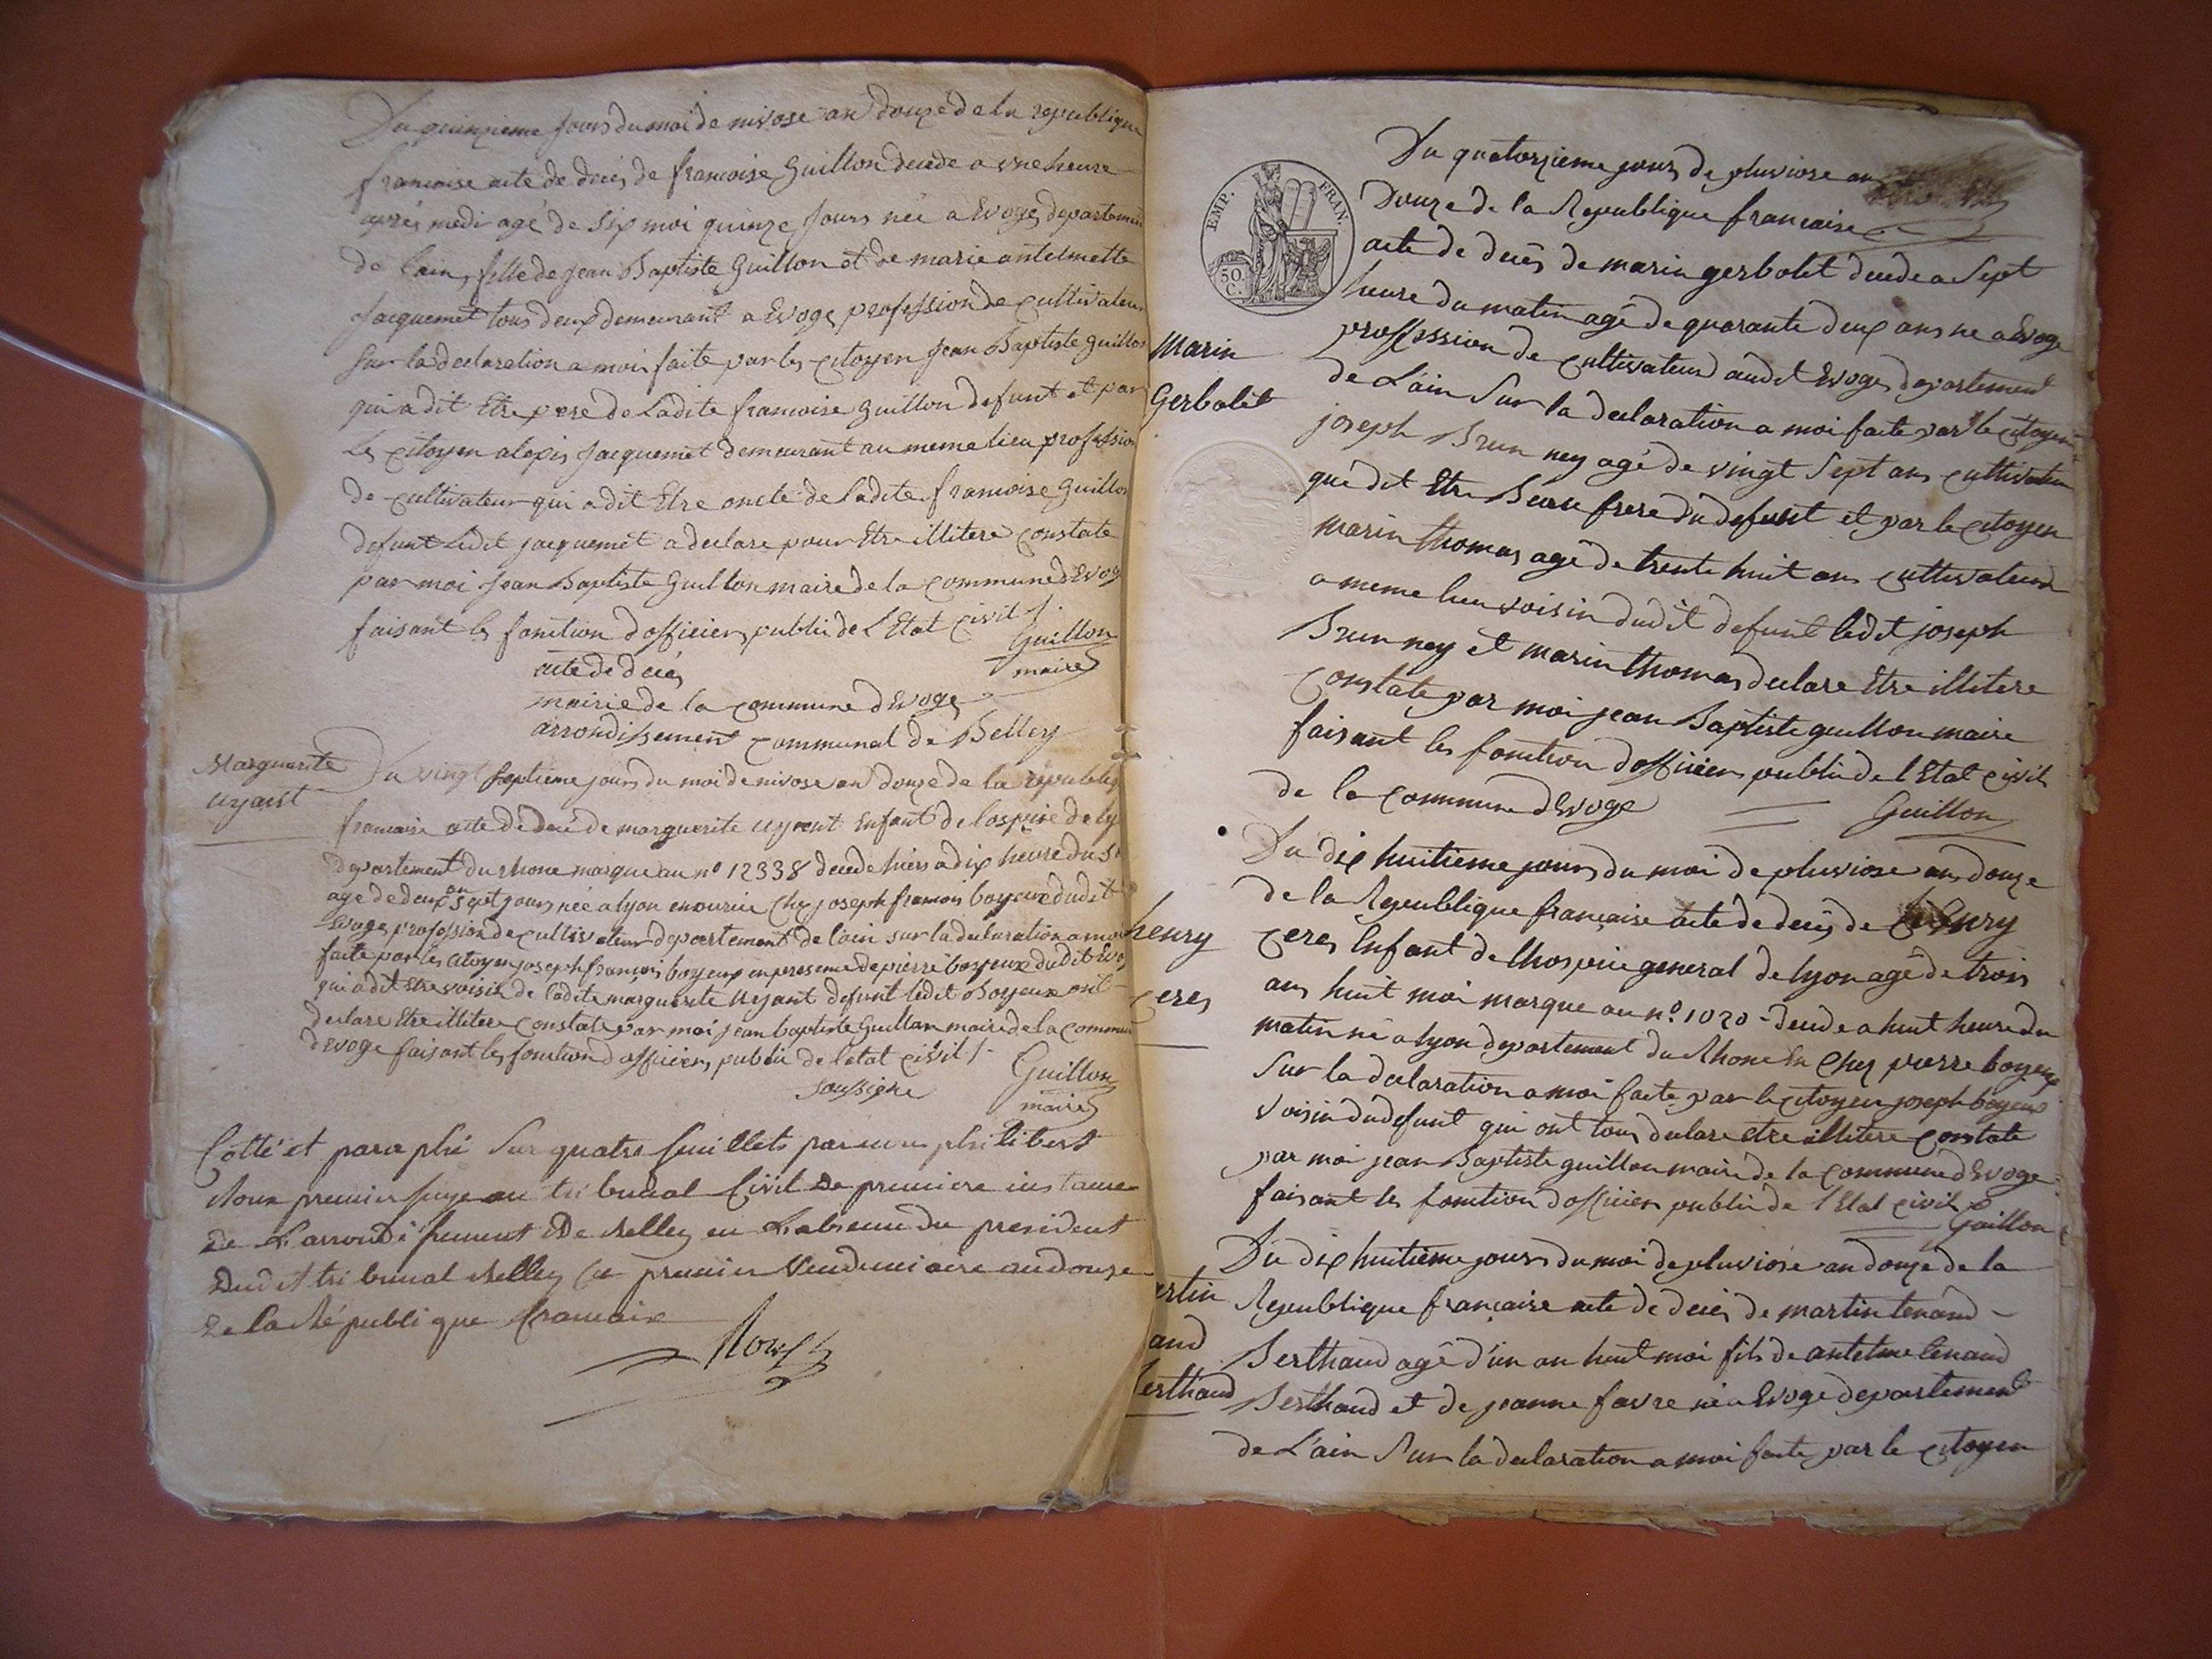 Du quinzieme jours du moi de nivose an douze de la republique
francaise acte de deces de francoise Guillon decede a une heure
apres medi agé de six moi quinze jours née a Evoges departement
de lain, fille de jean Baptiste Guillon et de marie antelmette
Jacquemet tous deux demeurant a Evoges profession de cultivateur
sur la declaration a moi faite par les citoyen jean Baptiste guillon
qui a dit Etre pere de Ladite francoise guillon defunt et par
Le citoyen alexis Jacquemet demeurant au meme lieu profession
de cultivateur qui a dit Etre oncle de ladite francoise Guillon
defunt Ledit jacquemet a declare pour Etre illitere constate
par moi Jean Baptiste Guillon maire de la commune d'Evoge
faisant les fonction d'officier public de l'Etat civil
Guillon
maire
acte de deces
mairie de la commune d'Evoges
arrondissement communal de Belley
Marguerite
uyant
Du vingt septieme jours du moi de nivose an douze de la republiq
francaise acte de decé de marguerite uyant Enfant de lospise de ly
departement du rhone marque au no 12338 decede hiers a dix heure du s
age de deux an sept jours née a lyon en ourice chez joseph francois boyeux dudit
Evoges profession de cultivateur departement de l'ain sur la declaration a moi
faite par les citoyen joseph françois boyeux en presence de pierre boyeux dudit Evog
qui a dit Etre voisin de ladite marguerite uyant defunt ledit Boyeux ont
declare Etre illitere constate par moi jean baptiste Guillon maire de la commun
d'evoge faisant les fonction d'officiers public de l'etat civil
soussigne
Guillon
maire
Cotté et paraphé sur quatre feuillets par nous philibert
Roux premier juge au tribunal Civil de premiere instance
de L'arrondissement de Belley en L'absence du president
dudit tribunal Belley ce premier Vendemiaire an douze
de la République francaise
Roux
EMP. FRAN.
50 C.
Du quatorzieme jours de pluviose an
Douze de la Republique francaise
acte de decès de marin gerbolet decede a Sept
heure du matin agé de quarante deux ans ne a Evoge
proffession de cultivateur audit Evoges departement
de L'ain Sur la declaration a moi faite par le citoyen
joseph Brun ney agé de vingt Sept ans cultivateur
qui dit Etre Beau frere du defunt et par le citoyen
marin thomas agé de trente huit ans cultivateur
a meme lieu voisin dudit defunt ledit joseph
Brun ney et marin thomas declare Etre illitere
constate par moi jean Baptiste guillon maire
faisant les fonction d'officier public de l'Etat civil
de la commune d'Evoge
Guillon
Marin
Gerbolet
Du dix huitieme jours du moi de pluviose an douze
de la Republique française acte de decès de henry
ceres Enfant de lhospice general de lyon agé de trois
ans huit moi marque au no. 1020 - decede a huit heure du
matin né a lyon departement du Rhone En chez pierre boyeux
Sur la declaration a moi faite par le citoyen joseph boyeux
voisin dudefunt qui ont tous declare etre illitere constate
par moi jean Baptiste guillon maire de la commune d'Evoge
faisant les fonction d'officier public de l'Etat civil
Guillon
henry
ceres
Du dix huitieme jours du moi de pluviose an douze de la
Republique française acte de decès de martin tenand
Berthaud agé d'un an huit moi fils de antelme tenand
Berthaud et de jeanne favre né a Evoge departement
de L'ain Sur la declaration a moi faite par le citoyen
ertin
and
Berthaud